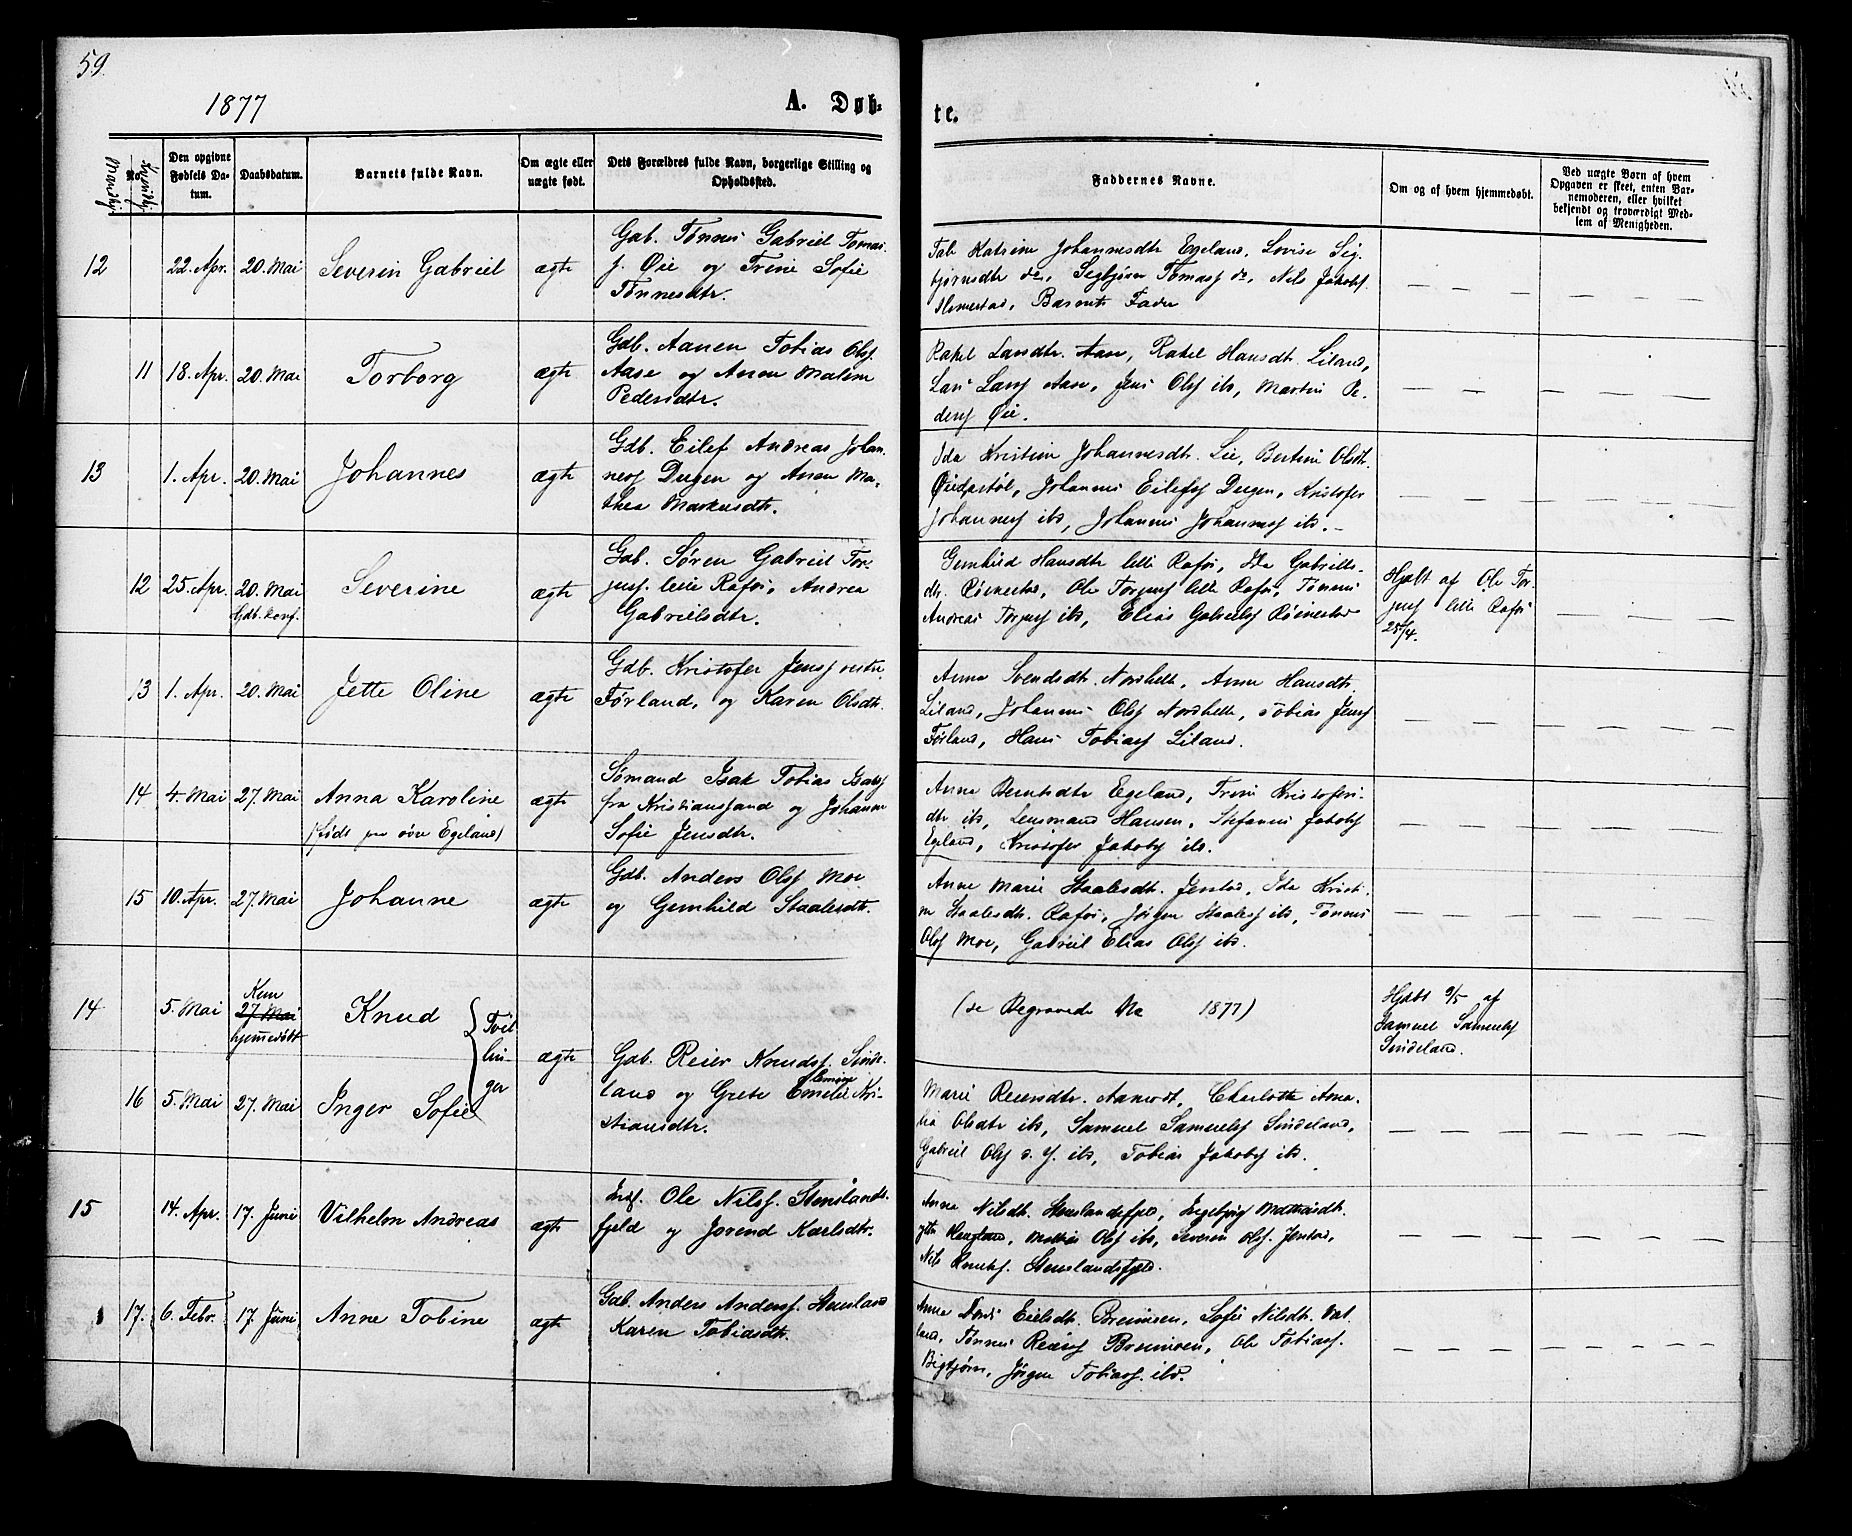 59.
1877
A. Døb-
te.
Mandkj.
No.
Kvindkj.
Den opgivne Fødsels Datum.
Daabsdatum.
Barnets fulde Navn.
Om ægte eller uægte født.
Dets Forældres fulde Navn, borgerlige Stilling og Opholdssted.
Faddernes Navne.
Om og af hvem hjemmedøbt.
Ved uægte Børn af hvem Opgaven er skeet, enten Barnemoderen, eller hvilket bekjendt og troværdigt Medlem af Menigheden.
12 22. Apr. 20. Mai Severin Gabriel ægte
Gab. Tønnes Gabriel Tomas
f. Øie og Trine Sofie
Tønnesdtr.
Tab. Katrine Johannesdtr Egeland, Lovise Sig-
bjørnsdtr do, Sigbjørn Tomass do, Nils Jakobs
Homestad, Barnets Fader
11 18. Apr. 20. Mai Torborg ægte
Gdb. Aanen Tobias Olsf.
Aase og Anen Malene
Pedersdtr.
Rakel Larsdtr. Aase, Rakel Hansdtr. Liland,
Lars Larsf Aase, Jens Olsf ibd, Martin Pe-
dersf Øie.
13 1. Apr. 20. Mai Johannes ægte
Gdb. Eilef Andreas Johan-
nesf Dugen og Anen Ma-
thea Markusdtr.
Ida Kristine Johannesdtr. Lie, Bertine Olsdtr.
Johannes Eilefsf Dugen, Kristofer
Johannesf ibd, Johannes Johannesf ibd. -
12 25. Apr. 20. Mai Severine ægte
Gdb. Konf.
Gab. Søren Gabriel Tor-
jusf. lille Rafos, Andrea
Gabrielsdtr.
Gunhild Hansdtr lille Rafos, Ida Gabriels-
dtr. Røinestad, Ole Torjusf lille Rafos, Tønnes
Andreas Torjusf ibd, Elias Gabrielsf Røinestad
Hjdbt af Ole Tor-
jusf lille Rafos
25/4.
13 1. Apr. 20. Mai Jette Oline ægte
Gdb. Kristofer Jensf vestre
Førland, og Karen Olsdtr.
Anna Svendsdtr. Nordhelle, Anne Hansdtr.
Liland, Johannes Olsf Nordhelle, Tobias Jensf
Førland, Hans Tobiasf Liland.
14 4. Mai 27. Mai Anna Karoline ægte
(født paa øvre Egeland)
Sømand Isak Tobias Isaksf
fra Kristianssand og Johanne
Sofie Jensdtr.
Anne Berntsdtr Egeland, Trine Kristofers-
dtr ibd, Lensmand Hansen, Stefanus Jakobsf
Egeland, Kristofer Jakobsf ibd.
15 10. Apr. 27. Mai Johanne ægte
Gdb. Anders Olsf Moe
og Gunhild Staalesdtr.
Anne Marie Staalesdtr. Jerstad, Ida Kristi-
ne Staalesdtr. Rafos, Jørgen Staalesf ibd, Tønnes
Olsf Moe, Gabriel Elias Olsf ibd.
14 5. Mai Kun
27. Mai
hjemmedøbt
Knud
Tvil
lin-
ger
ægte
(se Begravede No 1877)
Hjdbt 9/5 af
Samuel Samuelsf
Sindeland.
Gab. Reier Knudsf. Sinde-
land og Grete Emelie Kri-
stiansdtr.
16 5. Mai 27. Mai Inger Sofie
Marie Reiersdtr. Aamodt, Charlotte Ama-
lia Olsdtr ibd, Samuel Samuelsf Sindeland,
Gabriel Olsf s. Y. ibd, Tobias Jakobsf ibd.
15 14. Apr. 17. Juni Vilhelm Andreas ægte
Inds. Ole Nilsf. Stenslands-
fjeld og Jorend Karlsdtr.
Anna Nilsdtr. Stenslandsfjeld, Ingebjørg Mathiasdtr.
ytre Haugland, Mathias Olsf ibd, Severin Olsf. Jerstad,
Nils Knutsf. Stenslandsfjeld.
17. 6. Febr. 17. Juni Anne Tobine ægte
Gdb. Anders Andersf. Stensland
Karen Tobiasdtr.
Anna Eielsdtr. Bruniøen, Sofie Nilsdtr. Vat-
land, Tønnes Reiersf Bruniøen, Ole Tobiasf.
Bigtjørn, Jørgen Tobiasf. ibd.